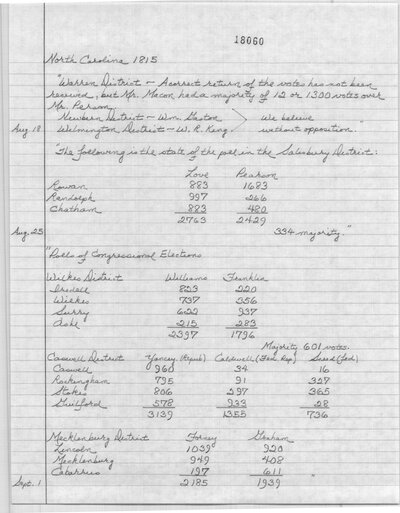 18060
North Carolina 1815
"Warren District - A correct return of the votes has not been
received, but Mr. Macon had a majority of 12 or 1300 votes over
Mr. Person.
Newbern District - Wm. Gaston > We believe
Aug. 18 Wilmington District - W. R. King without opposition."
"The following is the state of the poll in the Salisbury District:
Love Pearson
Rowan 883 1683
Randolph 997 266
Chatham 883 480
2763 2429
Aug. 25 334 majority"
"Polls of Congressional Elections
Wilkes District Williams Franklin
Iredell 823 220
Wilkes 737 356
Surry 622 937
Ashe 215 283
2397 1796
Majority 601 votes.
Caswell District Yancey (Repub) Caldwell (Fed. Rep) (Fed)
Caswell 960 34 16
Rockingham 795 91 327
Stokes 806 297 365
Guilford 578 933 28
3139 1355 736
Mecklenburg District Forney Graham
Lincoln 1039 920
Mecklenburg 949 408
Cabarrus 197 611
Sept. 1 2185 1939 "